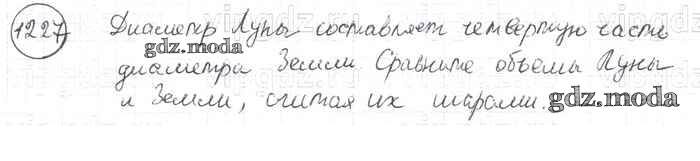 1227 Диаметр Луны составляет четвертую часть
gdz.moda
диаметра Земли. Сравните объемы Луны
и Земли, считая их шарами.
gdz.moda